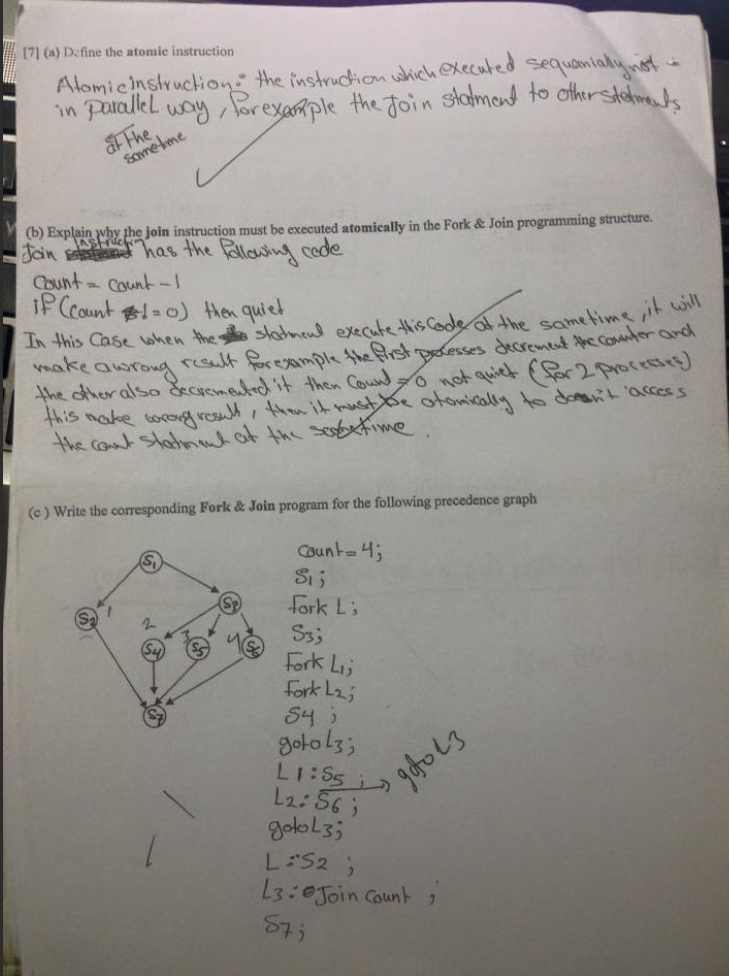 [7] (a) Define the atomic instruction
Atomic instruction: the instruction which executed sequanially not
in parallel way, for example the Join statment to other statments
at the
sametime
(b) Explain why the join instruction must be executed atomically in the Fork & Join programming structure.
Join instruction has the following code
Count = count - 1
if (count != 0) then quiet
In this case when the statment execute this code at the sametime, it will
make a wrong result for example the first processes decrement the counter and
the other also decremented it then Count = 0 not quiet (for 2 processes)
this make wrong result, then it must be atomically to doesn't access
the count statment at the sametime.
(c) Write the corresponding Fork & Join program for the following precedence graph
S1
S2 1
S3
2
S4
3
S5
4
S6
S7
Count = 4;
S1;
fork L;
S3;
Fork L1;
Fork L2;
S4;
goto L3;
L1: S5; → goto L3
L2: S6;
goto L3;
L: S2;
L3: Join count;
S7;